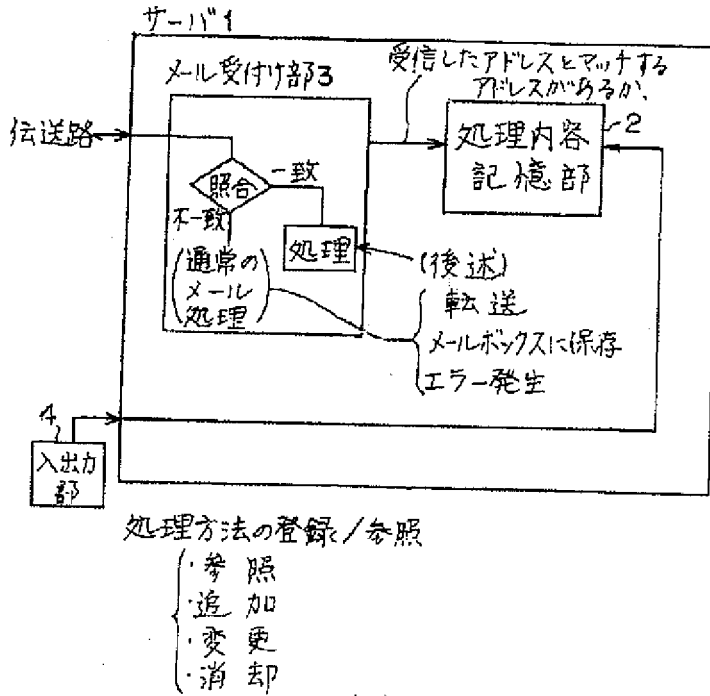 サーバ1
メール受付け部3
受信したアドレスとマッチする
アドレスがあるか、
2
伝送路
処理内容
記憶部
照合
一致
不一致
処理
(後述)
(通常の
メール
処理)
転送
メールボックスに保存
エラー発生
4
入出力
部
処理方法の登録/参照
・参照
・追加
・変更
・消却